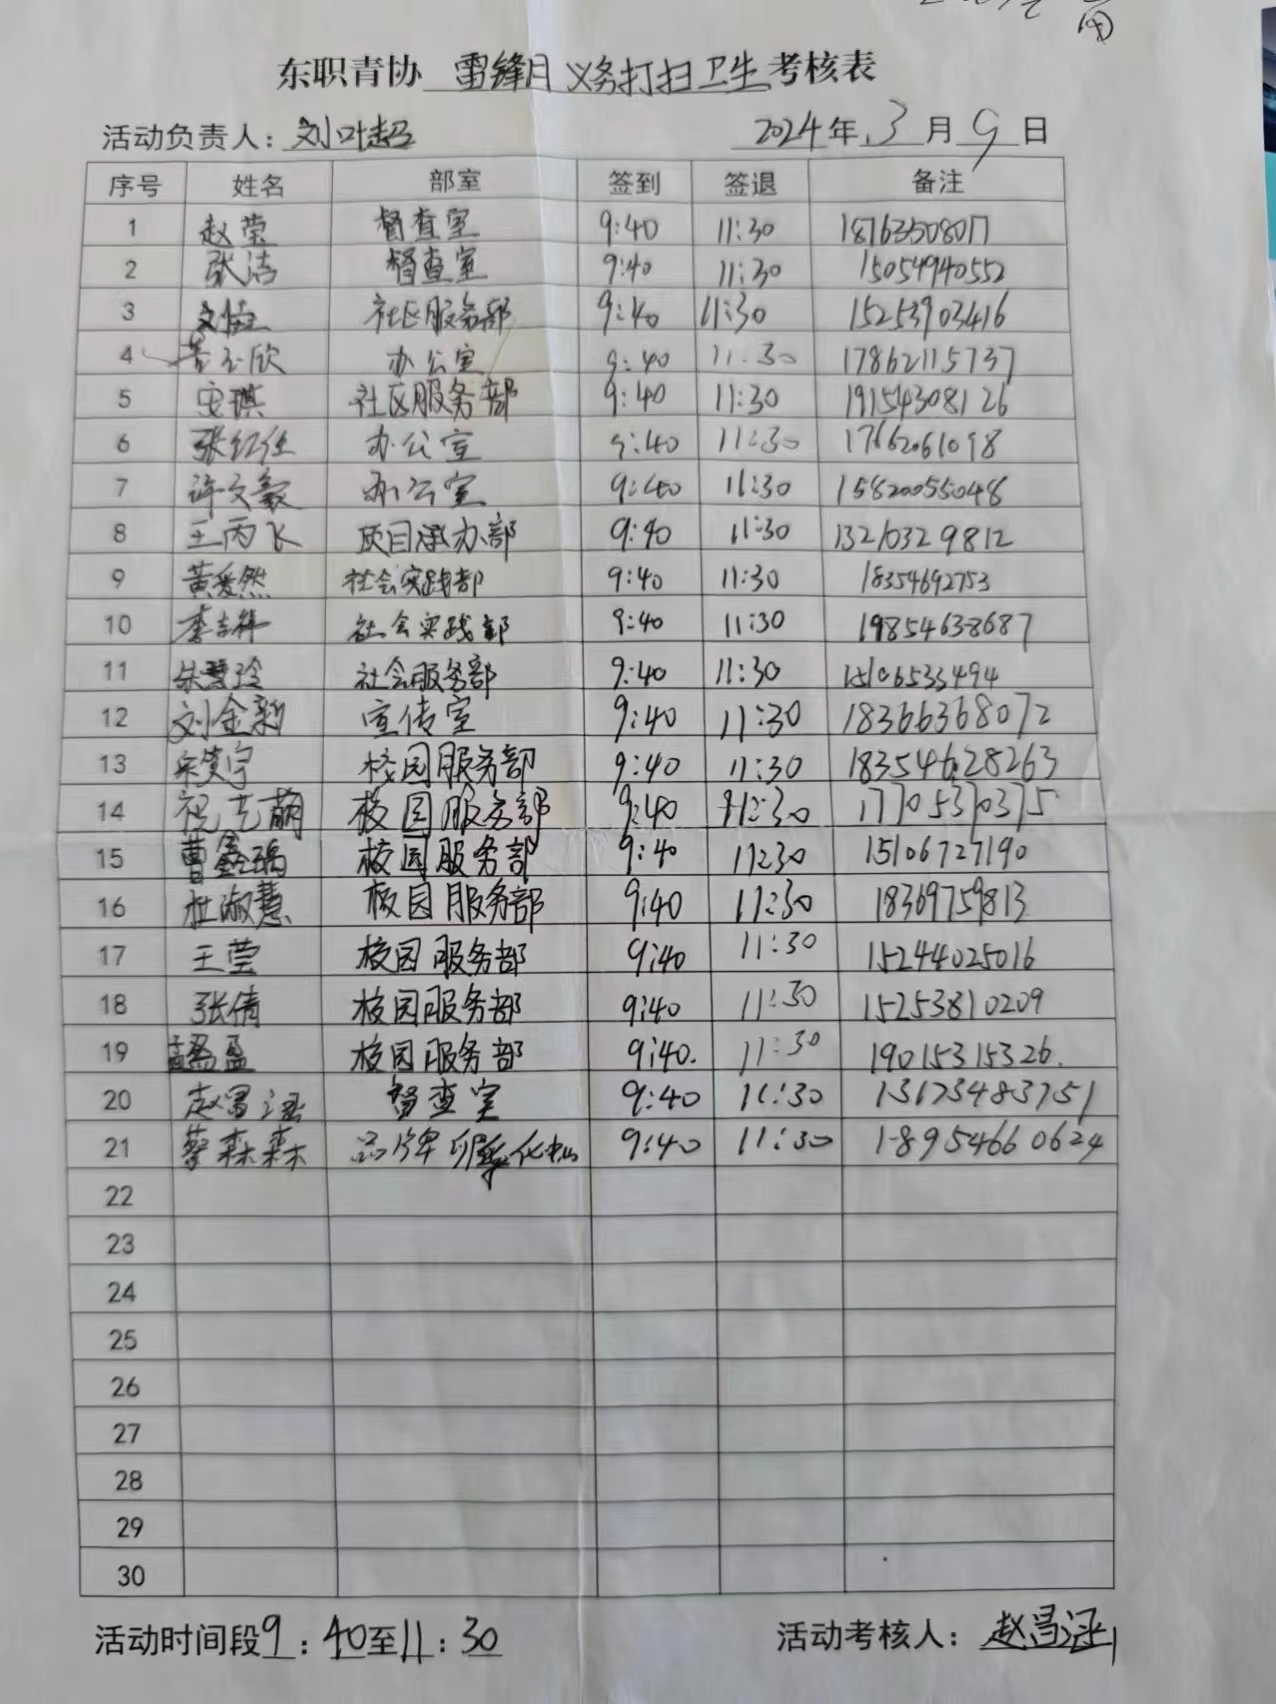 东职青协 雷锋月义务打扫卫生 考核表
活动负责人：刘叶超 2024年3月9日
序号 姓名 部室 签到 签退 备注
1 赵莹 督查室 9:40 11:30 18763508017
2 张洁 督查室 9:40 11:30 15054940552
3 社区服务部 9:40 11:30 15253903416
4 办公室 9:40 11:30 17862115737
5 安琪 社区服务部 9:40 11:30 19154308126
6 张红仕 办公室 9:40 11:30 17662061098
7 许文毅 办公室 9:40 11:30 15820055048
8 王丙飞 项目承办部 9:40 11:30 13210329812
9 黄爱然 社会实践部 9:40 11:30 18354692753
10 李吉祥 社会实践部 9:40 11:30 19854638687
11 朱慧玲 社会服务部 9:40 11:30 15106533494
12 刘金新 宣传室 9:40 11:30 18366368072
13 校园服务部 9:40 11:30 18354628263
14 祝克萌 校园服务部 9:40 11:30 17705370375
15 曹鑫瑞 校园服务部 9:40 11:30 15106727190
16 杜淑慧 校园服务部 9:40 11:30 18369759813
17 王莹 校园服务部 9:40 11:30 15244025016
18 张倩 校园服务部 9:40 11:30 15253810209
19 校园服务部 9:40. 11:30 19015315326.
20 督查室 9:40 11:30 13173483751
21 蔡森森 品牌孵化中心 9:40 11:30 18954660624
22
23
24
25
26
27
28
29
30
活动时间段9：40至11：30 活动考核人：赵昌涵